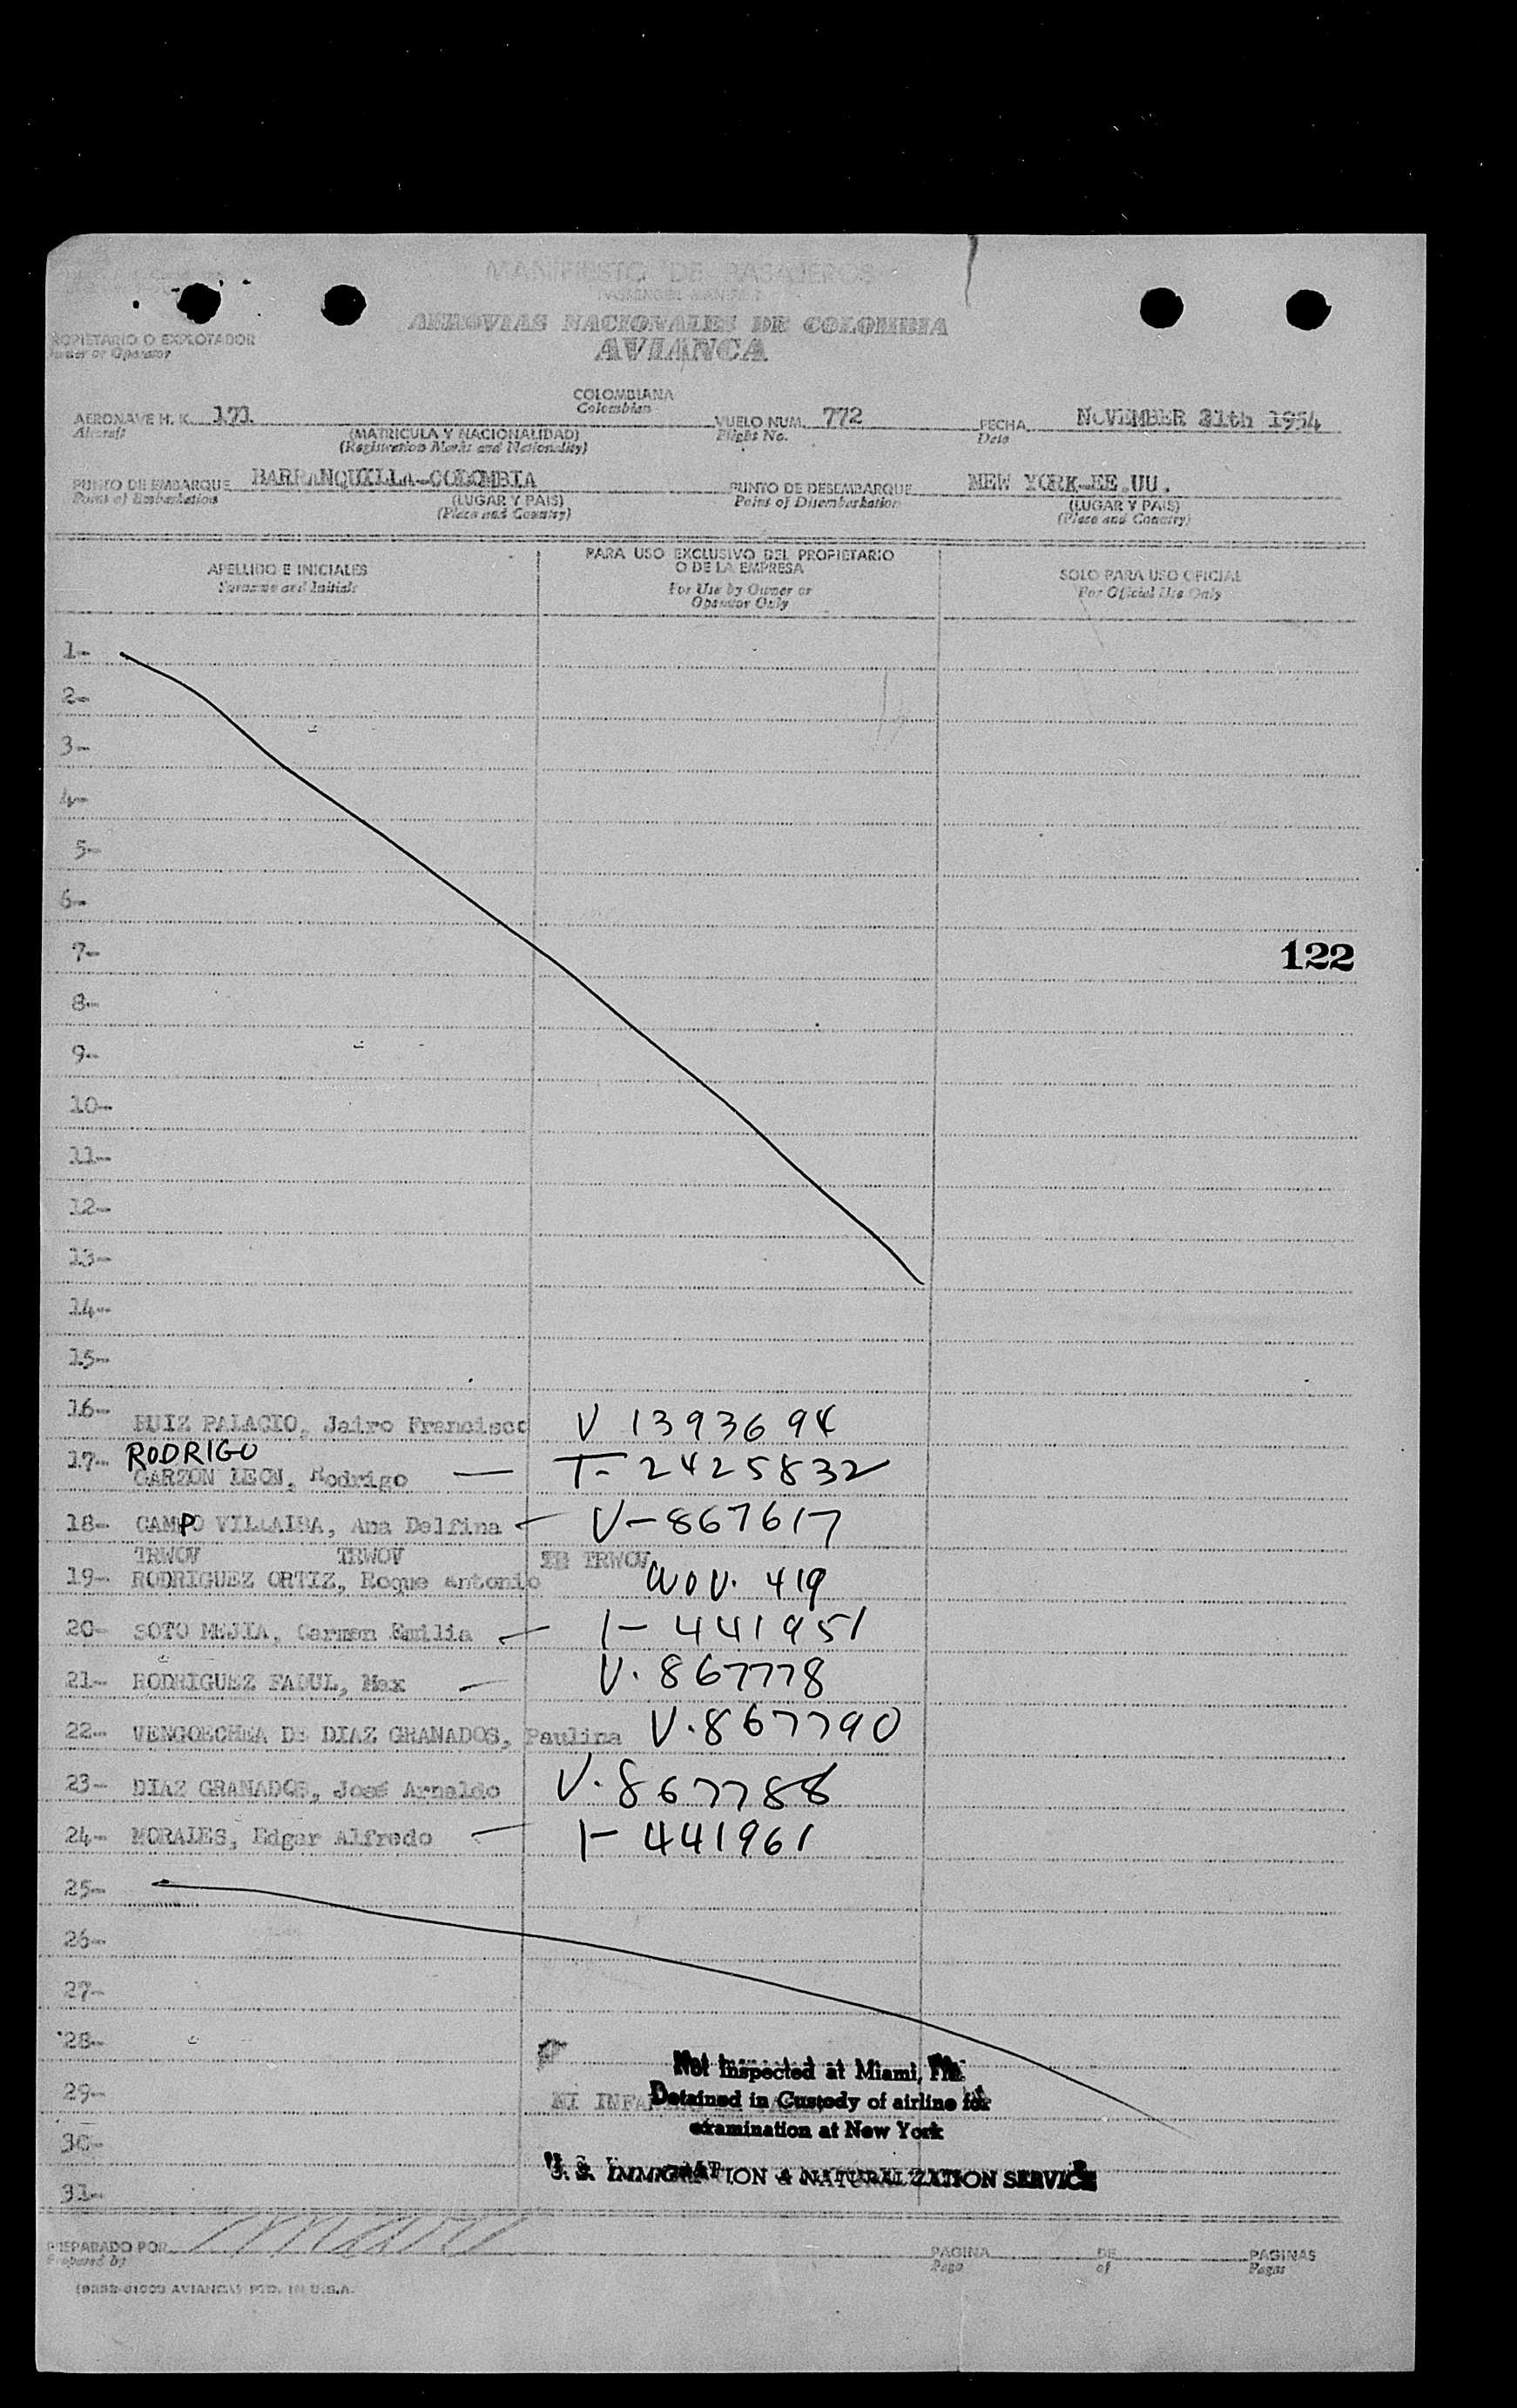 MANIFIESTO DE PASAJEROS
PASSENGER MANIFEST
AEROVIAS NACIONALES DE COLOMBIA
AVIANCA
ROPIETARIO O EXPLOTADOR
Owner or Operator
COLOMBIANA
Colombian
AERONAVE H. K. 171 VUELO NUM. 772 FECHA NOVEMBER 21th 1954
Aircraft (MATRICULA Y NACIONALIDAD) Flight No. Date
(Registration Marks and Nationality)
PUNTO DE EMBARQUE BARRANQUILLA-COLOMBIA PUNTO DE DESEMBARQUE NEW YORK-EE.UU.
Point of Embarkation (LUGAR Y PAIS) Point of Disembarkation (LUGAR Y PAIS)
(Place and Country) (Place and Country)
APELLIDO E INICIALES PARA USO EXCLUSIVO DEL PROPIETARIO O DE LA EMPRESA SOLO PARA USO OFICIAL
Surname and Initials For Use by Owner or Operator Only For Official Use Only
1-
2-
3-
4-
5-
6-
7- 122
8-
9-
10-
11-
12-
13-
14-
15-
16- RUIZ PALACIO, Jairo Francisco V 1393694
RODRIGO
17- GARZON LEON, Rodrigo — T- 2425832
18- CAMPO VILLALBA, Ana Delfina - V-867617
TRWOV TRWOV TRWOV
19- RODRIGUEZ ORTIZ, Roque Antonio WOV. 419
20- SOTO MEJIA, Carmen Emilia - I-441951
21- RODRIGUEZ FADUL, Max - V.867778
22- VENGOECHEA DE DIAZ GRANADOS, Paulina V.867790
23- DIAZ GRANADOS, José Arnaldo V.867788
24- MORALES, Edgar Alfredo — I-441961
25-
26-
27-
28-
Not Inspected at Miami, Fla.
29- Detained in Custody of airline for
examination at New York
30-
U. S. IMMIGRATION & NATURALIZATION SERVICE
31-
PREPARADO POR PAGINA DE PAGINAS
Prepared by Page of Pages
AVIANCA PTD. IN U.S.A.